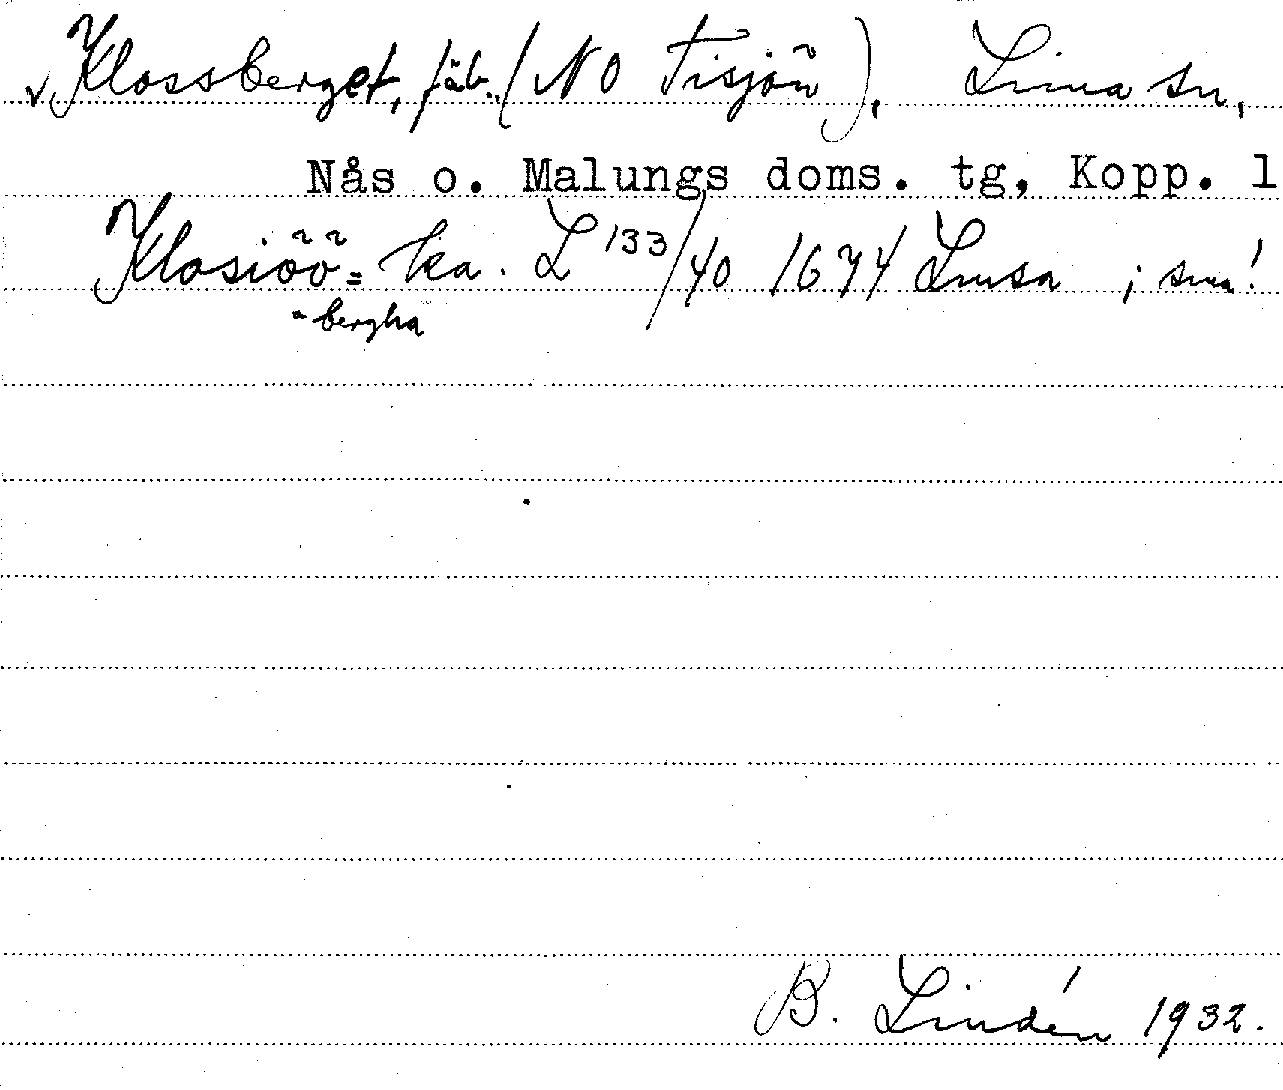 Klossberget, fäb. (NO Tisjön), Lima sn,
Nås o. Malungs doms. tg, Kopp. l
Klosiöö= ka. L 133/40 1674 Limsa ; sma!
"bergha
B. Lindén 1932.